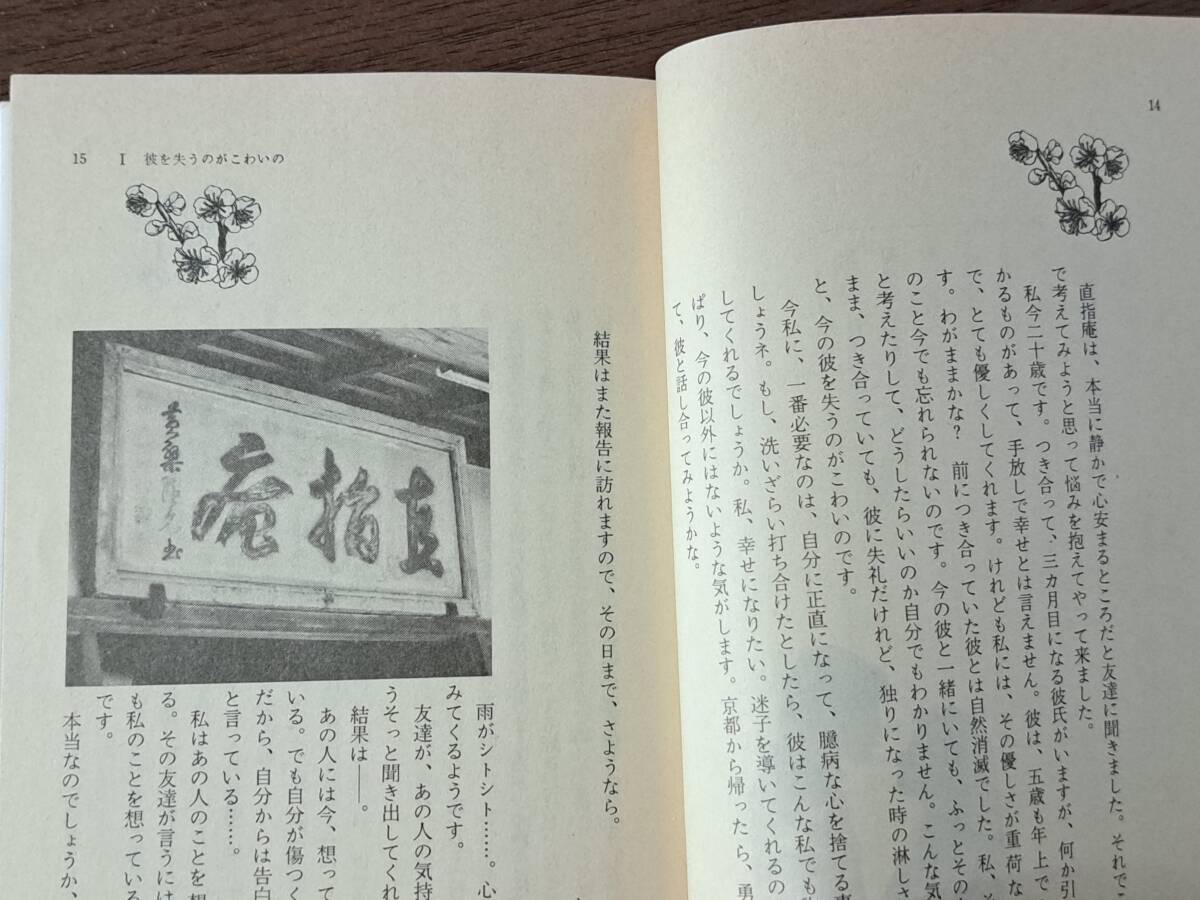 14
直指庵は、本当に静かで心安まるところだと友達に聞きました。それでこ
で考えてみようと思って悩みを抱えてやって来ました。
私今二十歳です。つき合って、三カ月目になる彼氏がいますが、何か引
かるものがあって、手放しで幸せとは言えません。彼は、五歳も年上で
で、とても優しくしてくれます。けれども私には、その優しさが重荷な
す。わがままかな?　前につき合っていた彼とは自然消滅でした。私、そ
のこと今でも忘れられないのです。今の彼と一緒にいても、ふっとその
と考えたりして、どうしたらいいのか自分でもわかりません。こんな気
まま、つき合っていても、彼に失礼だけれど、独りになった時の淋しさ
と、今の彼を失うのがこわいのです。
今私に、一番必要なのは、自分に正直になって、臆病な心を捨てる事
しょうネ。もし、洗いざらい打ち合けたとしたら、彼はこんな私でも
してくれるでしょうか。私、幸せになりたい。迷子を導いてくれるの
ぱり、今の彼以外にはないような気がします。京都から帰ったら、勇
て、彼と話し合ってみようかな。
15　I　彼を失うのがこわいの
結果はまた報告に訪れますので、その日まで、さようなら。
直指庵
雨がシトシト……。心
みてくるようです。
友達が、あの人の気持
うそっと聞き出してくれ
結果は――。
あの人には今、想って
いる。でも自分が傷つく
だから、自分からは告白
と言っている……。
私はあの人のことを想
る。その友達が言うには
も私のことを想っている
です。
本当なのでしょうか、